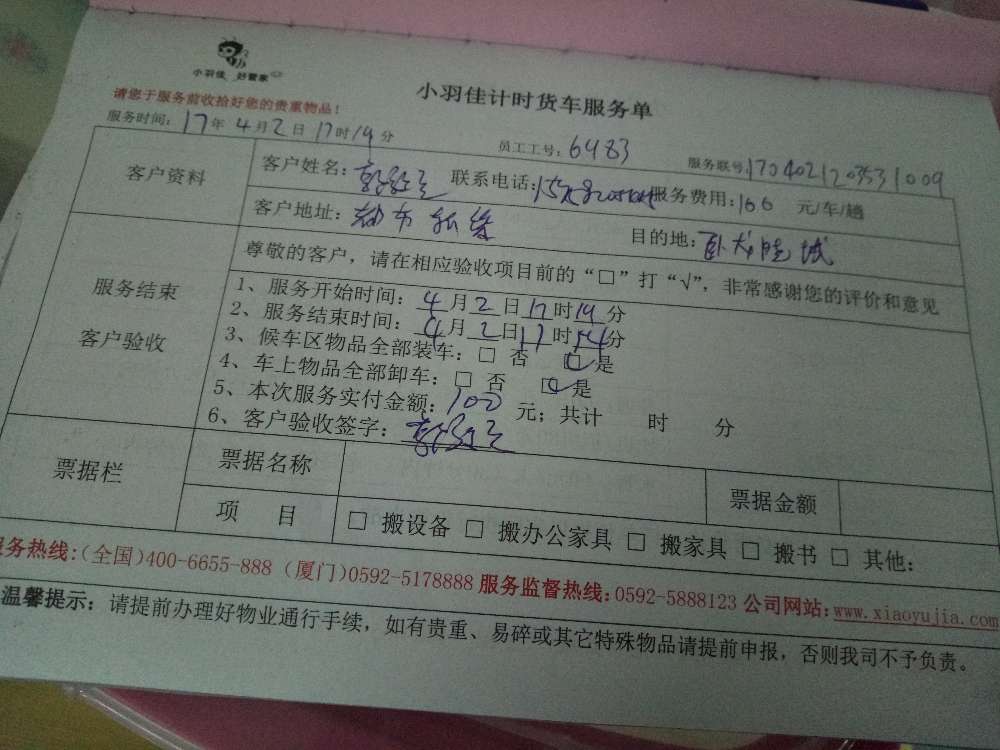 小羽佳 好管家
小羽佳计时货车服务单
请您于服务前收拾好您的贵重物品!
服务时间: 17年 4月 2日 17时 19分 员工工号: 6983 服务联号
客户资料 客户姓名: 联系电话: 服务费用: 100 元/车/趟
客户地址: 目的地: 卧龙晓城
尊敬的客户，请在相应验收项目前的“□”打“√”，非常感谢您的评价和意见
服务结束
客户验收
1、服务开始时间: 4月2日17时19分
2、服务结束时间: 4月2日17时54分
3、候车区物品全部装车: □ 否 □ 是
4、车上物品全部卸车: □ 否 □ 是
5、本次服务实付金额: 100 元; 共计 时 分
6、客户验收签字:
票据栏 票据名称 票据金额
项 目 □ 搬设备 □ 搬办公家具 □ 搬家具 □ 搬书 □ 其他:
服务热线:(全国)400-6655-888 (厦门)0592-5178888 服务监督热线:0592-5888123 公司网站:www.xiaoyujia.com
温馨提示: 请提前办理好物业通行手续，如有贵重、易碎或其它特殊物品请提前申报，否则我司不予负责。